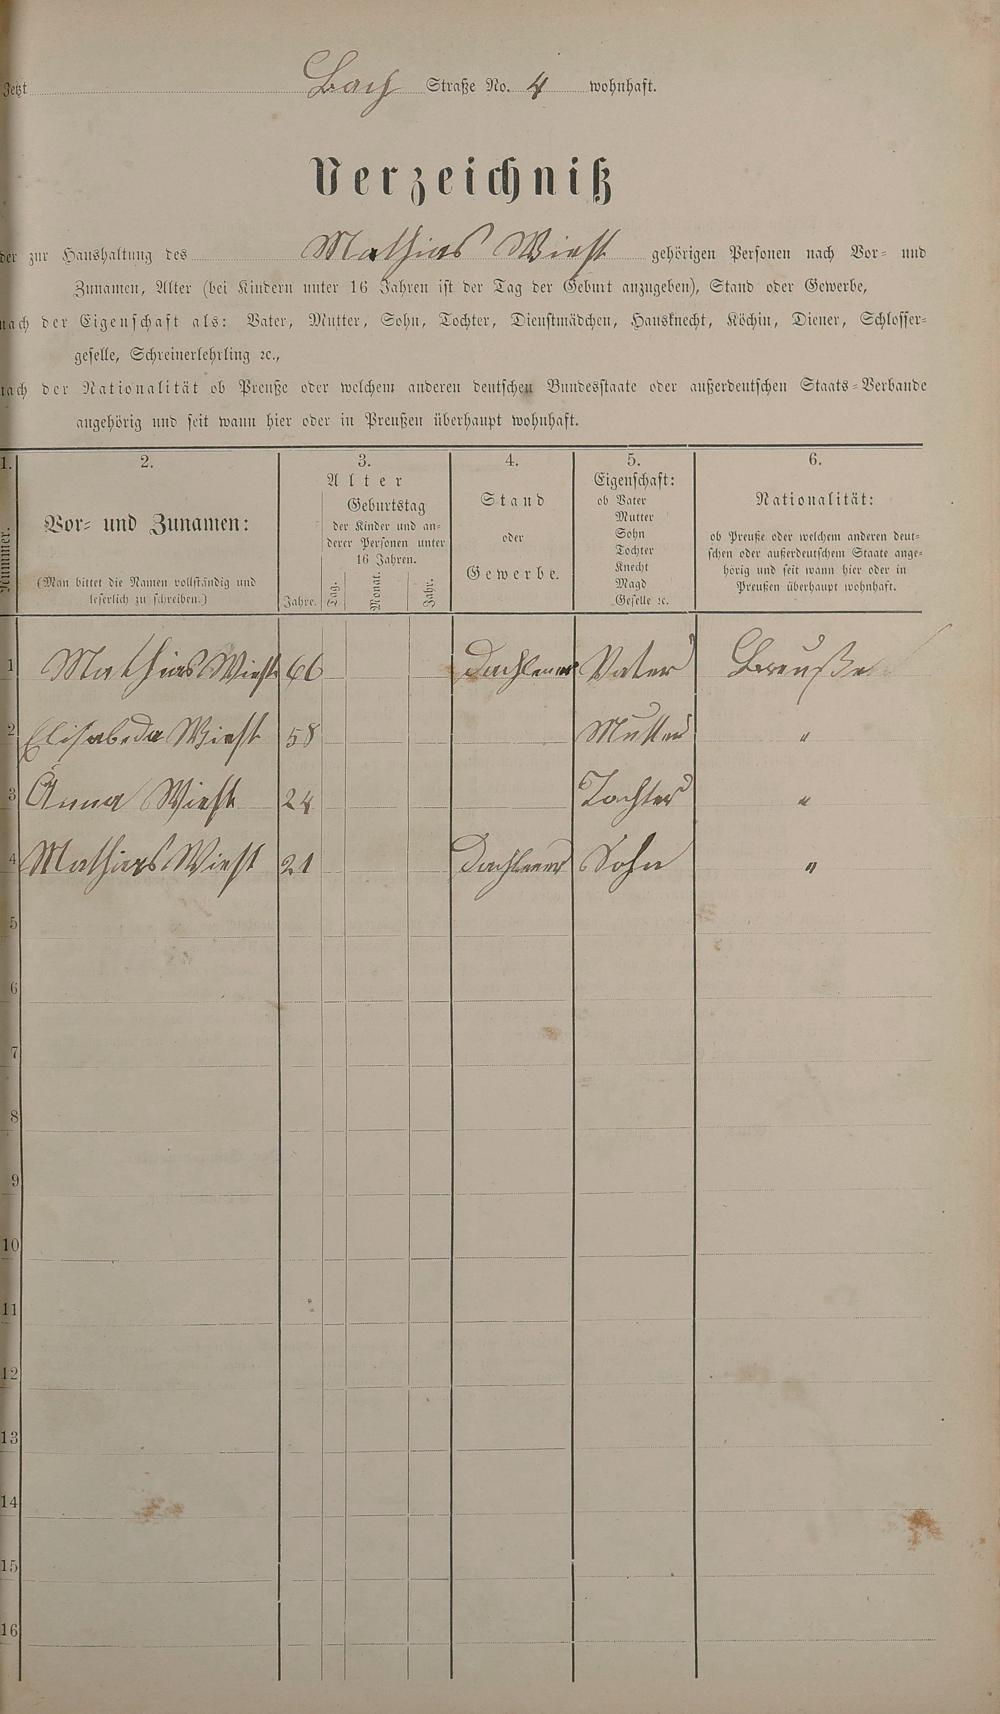 Jetzt Bach Straße No. 4 wohnhaft.
Verzeichniß
der zur Haushaltung des Mathias Wiest gehörigen Personen nach Vor- und
Zunamen, Alter (bei Kindern unter 16 Jahren ist der Tag der Geburt anzugeben), Stand oder Gewerbe,
nach der Eigenschaft als: Vater, Mutter, Sohn, Tochter, Dienstmädchen, Hausknecht, Köchin, Diener, Schlosser-
geselle, Schreinerlehrling ꝛc.,
nach der Nationalität ob Preuße oder welchem anderen deutschen Bundesstaate oder außerdeutschen Staats-Verbande
angehörig und seit wann hier oder in Preußen überhaupt wohnhaft.
1. 2. 3. 4. 5. 6.
Nummer.
Vor- und Zunamen:
(Man bittet die Namen vollständig und
leserlich zu schreiben.)
Alter
Geburtstag
der Kinder und an-
derer Personen unter
16 Jahren.
Jahre. Tag. Monat. Jahr.
Stand
oder
Gewerbe.
Eigenschaft:
ob Vater
Mutter
Sohn
Tochter
Knecht
Magd
Geselle ꝛc.
Nationalität:
ob Preuße oder welchem anderen deut-
schen oder außerdeutschem Staate ange-
hörig und seit wann hier oder in
Preußen überhaupt wohnhaft.
1 Mathias Wiest 66 Vater Breuße
2 Elisabeda Wiest 58 Mutter "
3 Anna Wiest 24 Tochter "
4 Mathias Wiest 21 Sohn "
5
6
7
8
9
10
11
12
13
14
15
16